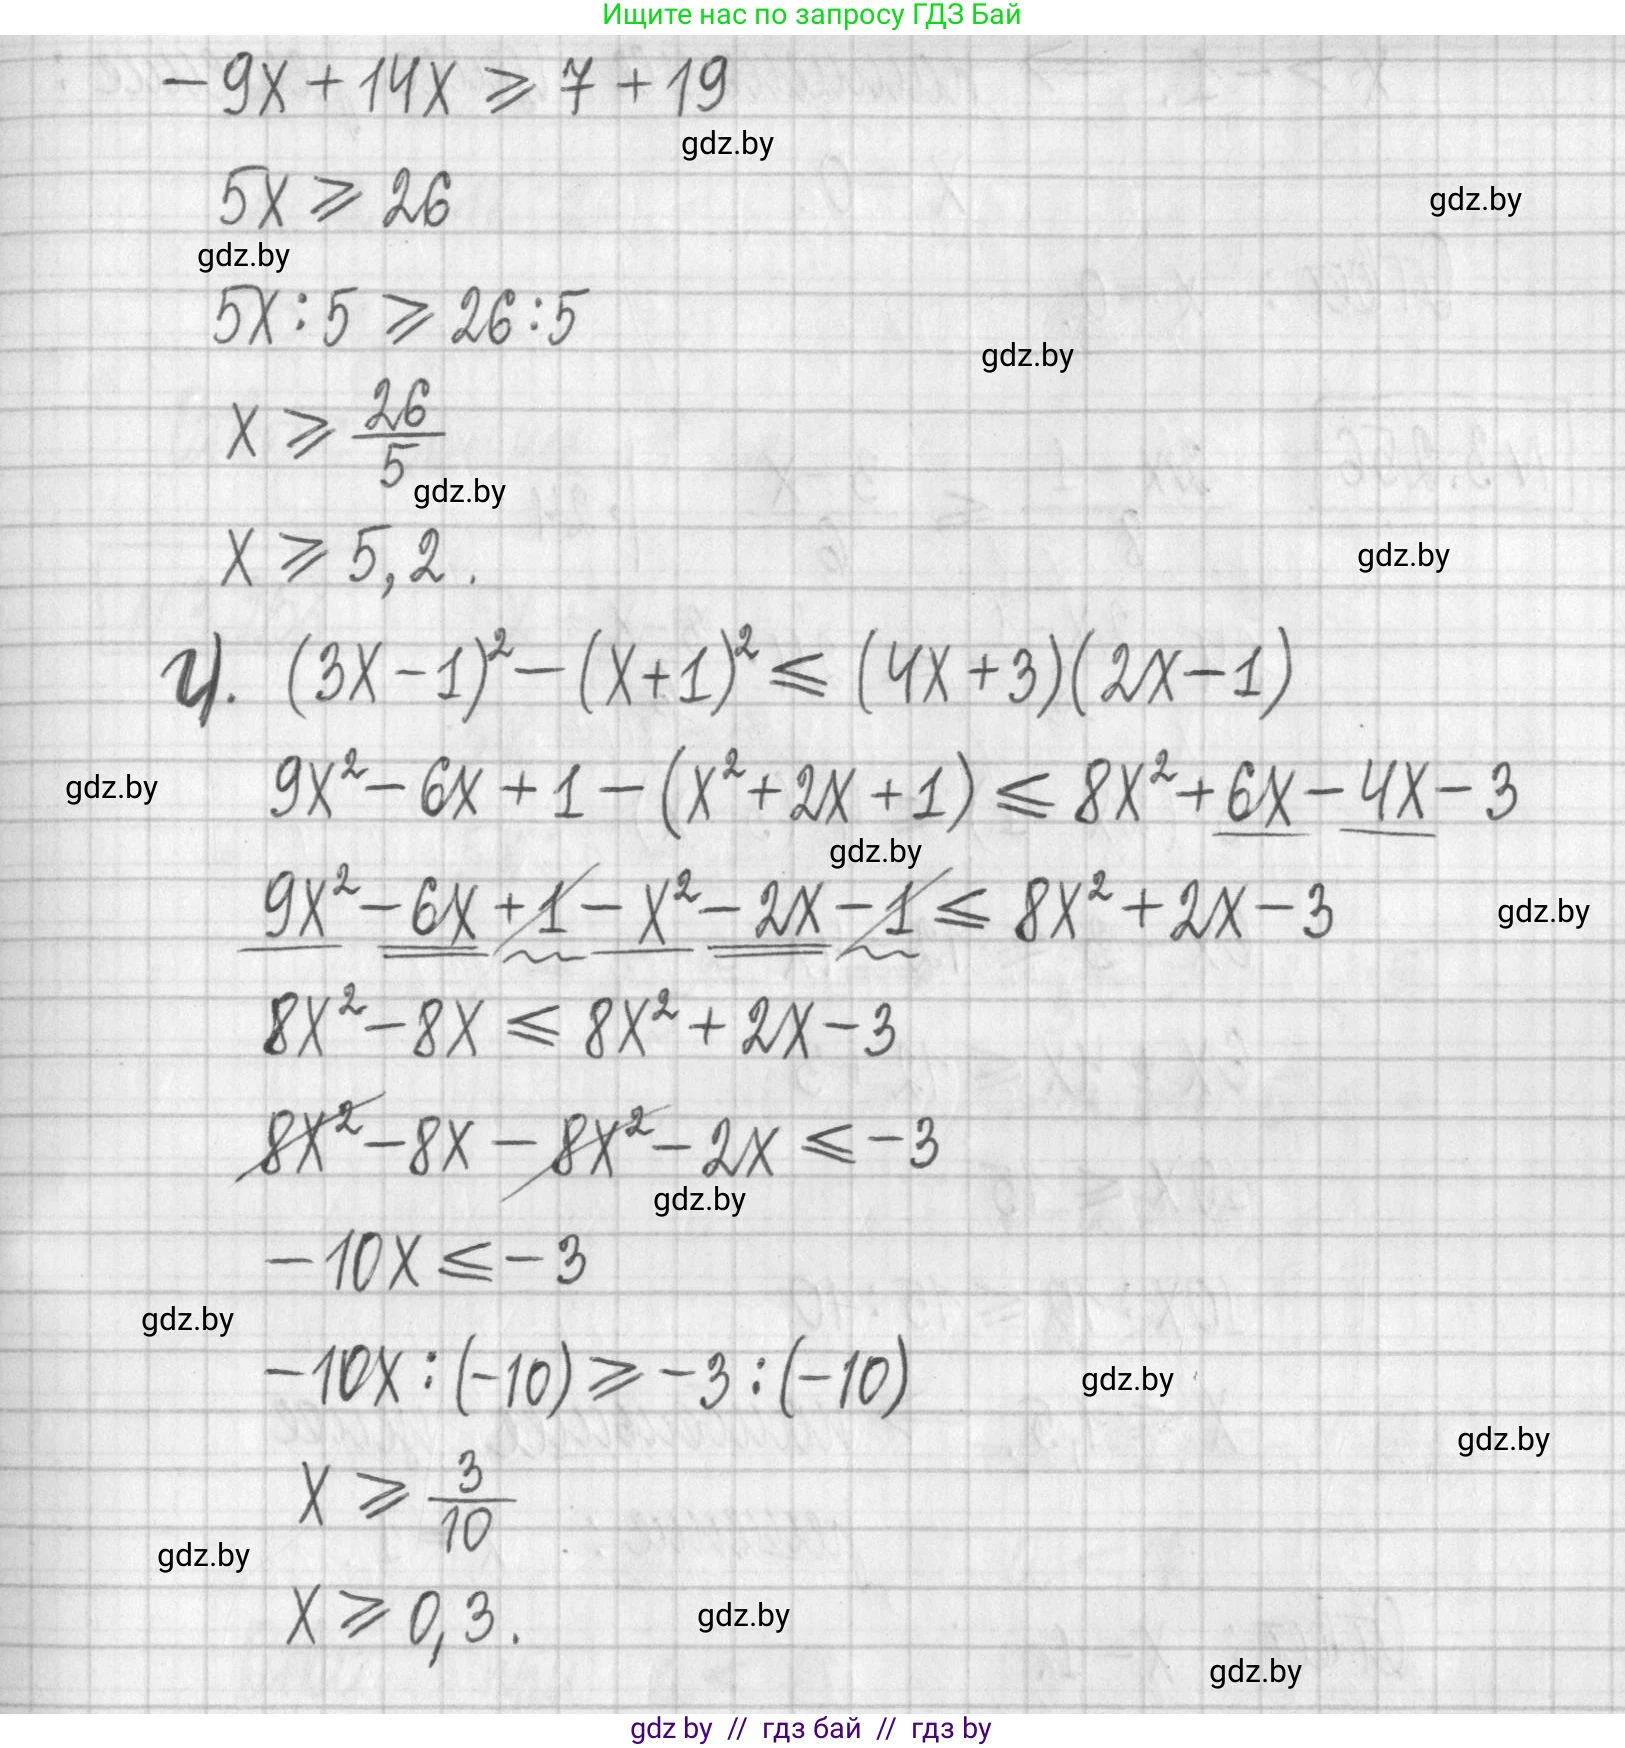 Ищите нас по запросу ГДЗ Бай
-9x + 14x ⩾ 7 + 19
gdz.by
5x ⩾ 26
gdz.by
gdz.by
5x : 5 ⩾ 26 : 5
gdz.by
x ⩾ 26/5
gdz.by
x ⩾ 5,2.
gdz.by
г). (3x - 1)² - (x + 1)² ⩽ (4x + 3)(2x - 1)
9x² - 6x + 1 - (x² + 2x + 1) ⩽ 8x² + 6x - 4x - 3
gdz.by
gdz.by
9x² - 6x + 1 - x² - 2x - 1 ⩽ 8x² + 2x - 3
gdz.by
8x² - 8x ⩽ 8x² + 2x - 3
8x² - 8x - 8x² - 2x ⩽ -3
gdz.by
-10x ⩽ -3
gdz.by
-10x : (-10) ⩾ -3 : (-10)
gdz.by
gdz.by
x ⩾ 3/10
gdz.by
x ⩾ 0,3.
gdz.by
gdz.by
gdz by // гдз бай // гдз by